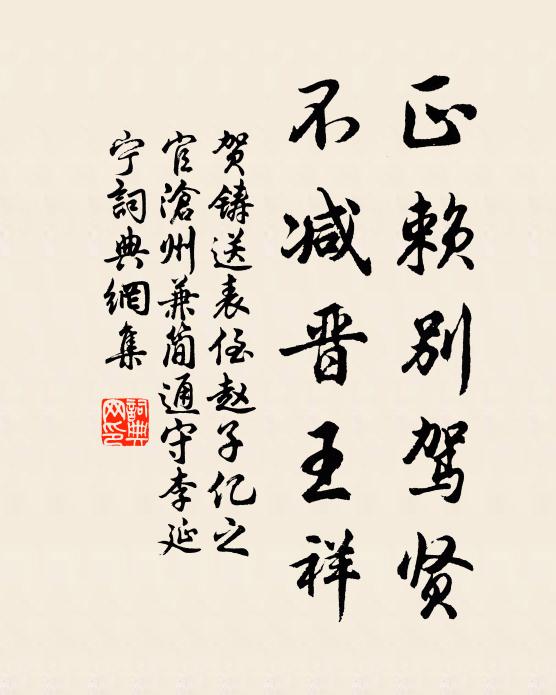 正赖别驾贤
不减晋王祥
贺铸送表侄赵子亿之
官滄州兼简通守李延
宁詞典網集
詞典
网印